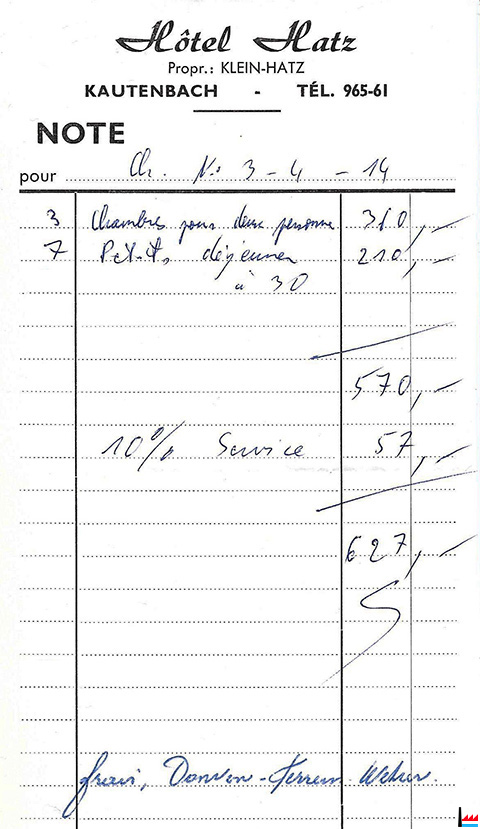 Hôtel Hatz
Propr.: KLEIN-HATZ
KAUTENBACH - TÉL. 965-61
NOTE
pour Ch. No: 3 - 4 - 14
3 Chambres pour deux personne 360,-
7 Petits déjeuner 210,-
à 30
570,-
10% Service 57,-
627,-